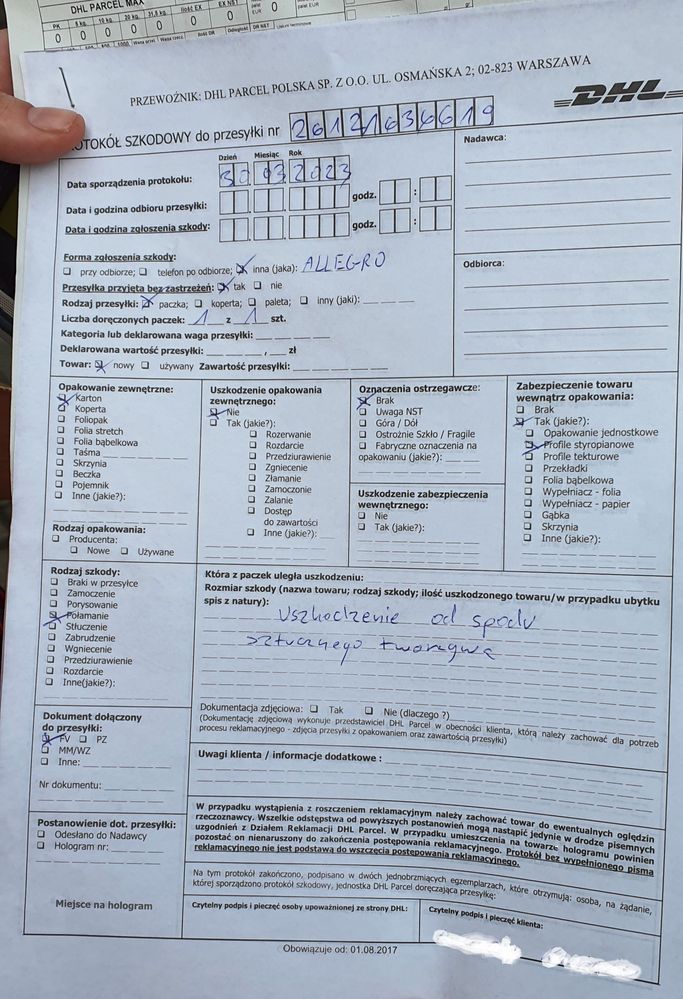 DHL PARCEL MAX
PK 5 kg. 10 kg. 20 kg. 31,5 kg. Ilość EX EX NST
0 0 0 0 0 0 0 0
PRZEWOŹNIK: DHL PARCEL POLSKA SP. Z O.O. UL. OSMAŃSKA 2; 02-823 WARSZAWA
DHL
OTOKÓŁ SZKODOWY do przesyłki nr
Dzień Miesiąc Rok
Data sporządzenia protokołu: 30 03 2023
Data i godzina odbioru przesyłki: godz. :
Data i godzina zgłoszenia szkody: godz. :
Nadawca:
Odbiorca:
Forma zgłoszenia szkody:
przy odbiorze; telefon po odbiorze; inna (jaka): ALLEGRO
Przesyłka przyjęta bez zastrzeżeń: tak nie
Rodzaj przesyłki: paczka; koperta; paleta; inny (jaki):
Liczba doręczonych paczek: 1 z 1 szt.
Kategoria lub deklarowana waga przesyłki:
Deklarowana wartość przesyłki: , zł
Towar: nowy używany Zawartość przesyłki:
Opakowanie zewnętrzne:
Karton
Koperta
Foliopak
Folia stretch
Folia bąbelkowa
Taśma
Skrzynia
Beczka
Pojemnik
Inne (jakie?):
Rodzaj opakowania:
Producenta:
Nowe Używane
Uszkodzenie opakowania
zewnętrznego:
Nie
Tak (jakie?):
Rozerwanie
Rozdarcie
Przedziurawienie
Zgniecenie
Złamanie
Zamoczenie
Zalanie
Dostęp
do zawartości
Inne (jakie?):
Oznaczenia ostrzegawcze:
Brak
Uwaga NST
Góra / Dół
Ostrożnie Szkło / Fragile
Fabryczne oznaczenia na
opakowaniu (jakie?):
Uszkodzenie zabezpieczenia
wewnętrznego:
Nie
Tak (jakie?):
Zabezpieczenie towaru
wewnątrz opakowania:
Brak
Tak (jakie?):
Opakowanie jednostkowe
Profile styropianowe
Profile tekturowe
Przekładki
Folia bąbelkowa
Wypełniacz - folia
Wypełniacz - papier
Gąbka
Skrzynia
Inne (jakie?):
Rodzaj szkody:
Braki w przesyłce
Zamoczenie
Porysowanie
Połamanie
Stłuczenie
Zabrudzenie
Wgniecenie
Przedziurawienie
Rozdarcie
Inne(jakie?):
Która z paczek uległa uszkodzeniu:
Rozmiar szkody (nazwa towaru; rodzaj szkody; ilość uszkodzonego towaru/w przypadku ubytku
spis z natury):
Uszkodzenie od spodu
sztucznego tworzywa
Dokumentacja zdjęciowa: Tak Nie (dlaczego ?)
(Dokumentację zdjęciową wykonuje przedstawiciel DHL Parcel w obecności klienta, którą należy zachować dla potrzeb
procesu reklamacyjnego - zdjęcia przesyłki z opakowaniem oraz zawartością przesyłki)
Dokument dołączony
do przesyłki:
FV PZ
MM/WZ
Inne:
Nr dokumentu:
Uwagi klienta / informacje dodatkowe :
Postanowienie dot. przesyłki:
Odesłano do Nadawcy
Hologram nr:
Miejsce na hologram
W przypadku wystąpienia z roszczeniem reklamacyjnym należy zachować towar do ewentualnych oględzin
rzeczoznawcy. Wszelkie odstępstwa od powyższych postanowień mogą nastąpić jedynie w drodze pisemnych
uzgodnień z Działem Reklamacji DHL Parcel. W przypadku umieszczenia na towarze hologramu powinien
pozostać on nienaruszony do zakończenia postępowania reklamacyjnego. Protokół bez wypełnionego pisma
reklamacyjnego nie jest podstawą do wszczęcia postępowania reklamacyjnego.
Na tym protokół zakończono, podpisano w dwóch jednobrzmiących egzemplarzach, które otrzymują: osoba, na żądanie,
której sporządzono protokół szkodowy, jednostka DHL Parcel doręczająca przesyłkę:
Czytelny podpis i pieczęć osoby upoważnionej ze strony DHL:
Czytelny podpis i pieczęć klienta:
Obowiązuje od: 01.08.2017